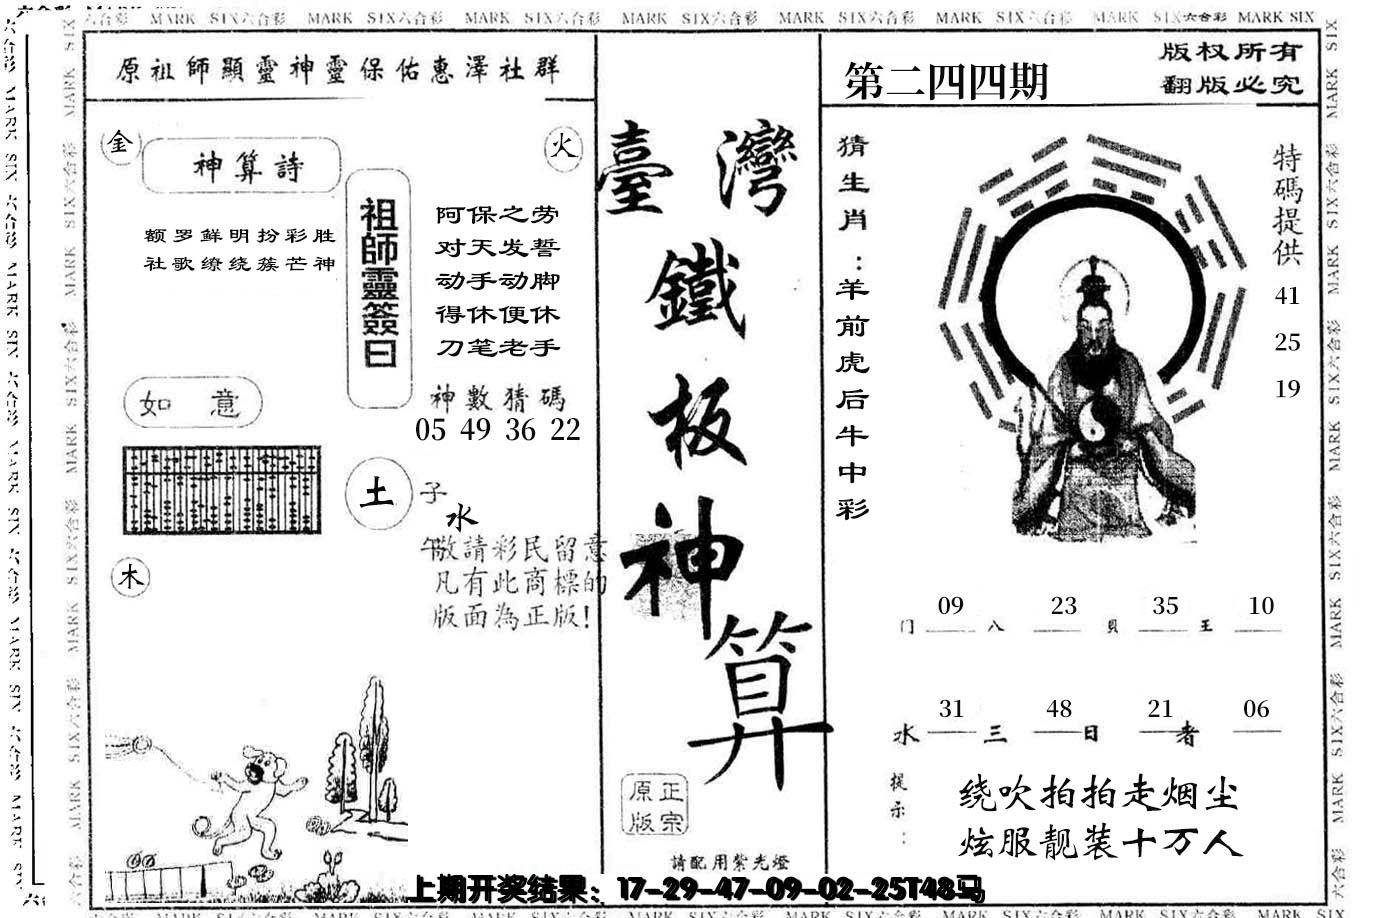 MARK SIX六合彩 MARK SIX六合彩 MARK SIX六合彩 MARK SIX六合彩 MARK SIX六合彩 MARK SIX六合彩 MARK SIX六合彩 MARK SIX
原祖師顯靈神靈保佑惠澤社群
金
神算詩
火
额罗鲜明扮彩胜
社歌缭绕蔟芒神
祖師靈簽曰
阿保之劳
对天发誓
动手动脚
得休便休
刀笔老手
神數猜碼
05 49 36 22
如意
土
子
水
午
敬請彩民留意
凡有此商標的
版面為正版!
木
臺灣
鐵
板
神
算
正宗
原版
請配用紫光燈
第二四四期
版权所有
翻版必究
猜生肖:羊前虎后牛中彩
特碼提供
41
25
19
09 23 35 10
门 八 貝 王
31 48 21 06
水 三 日 者
提示:
绕吹拍拍走烟尘
炫服靓装十万人
上期开奖结果：17-29-47-09-02-25T48马